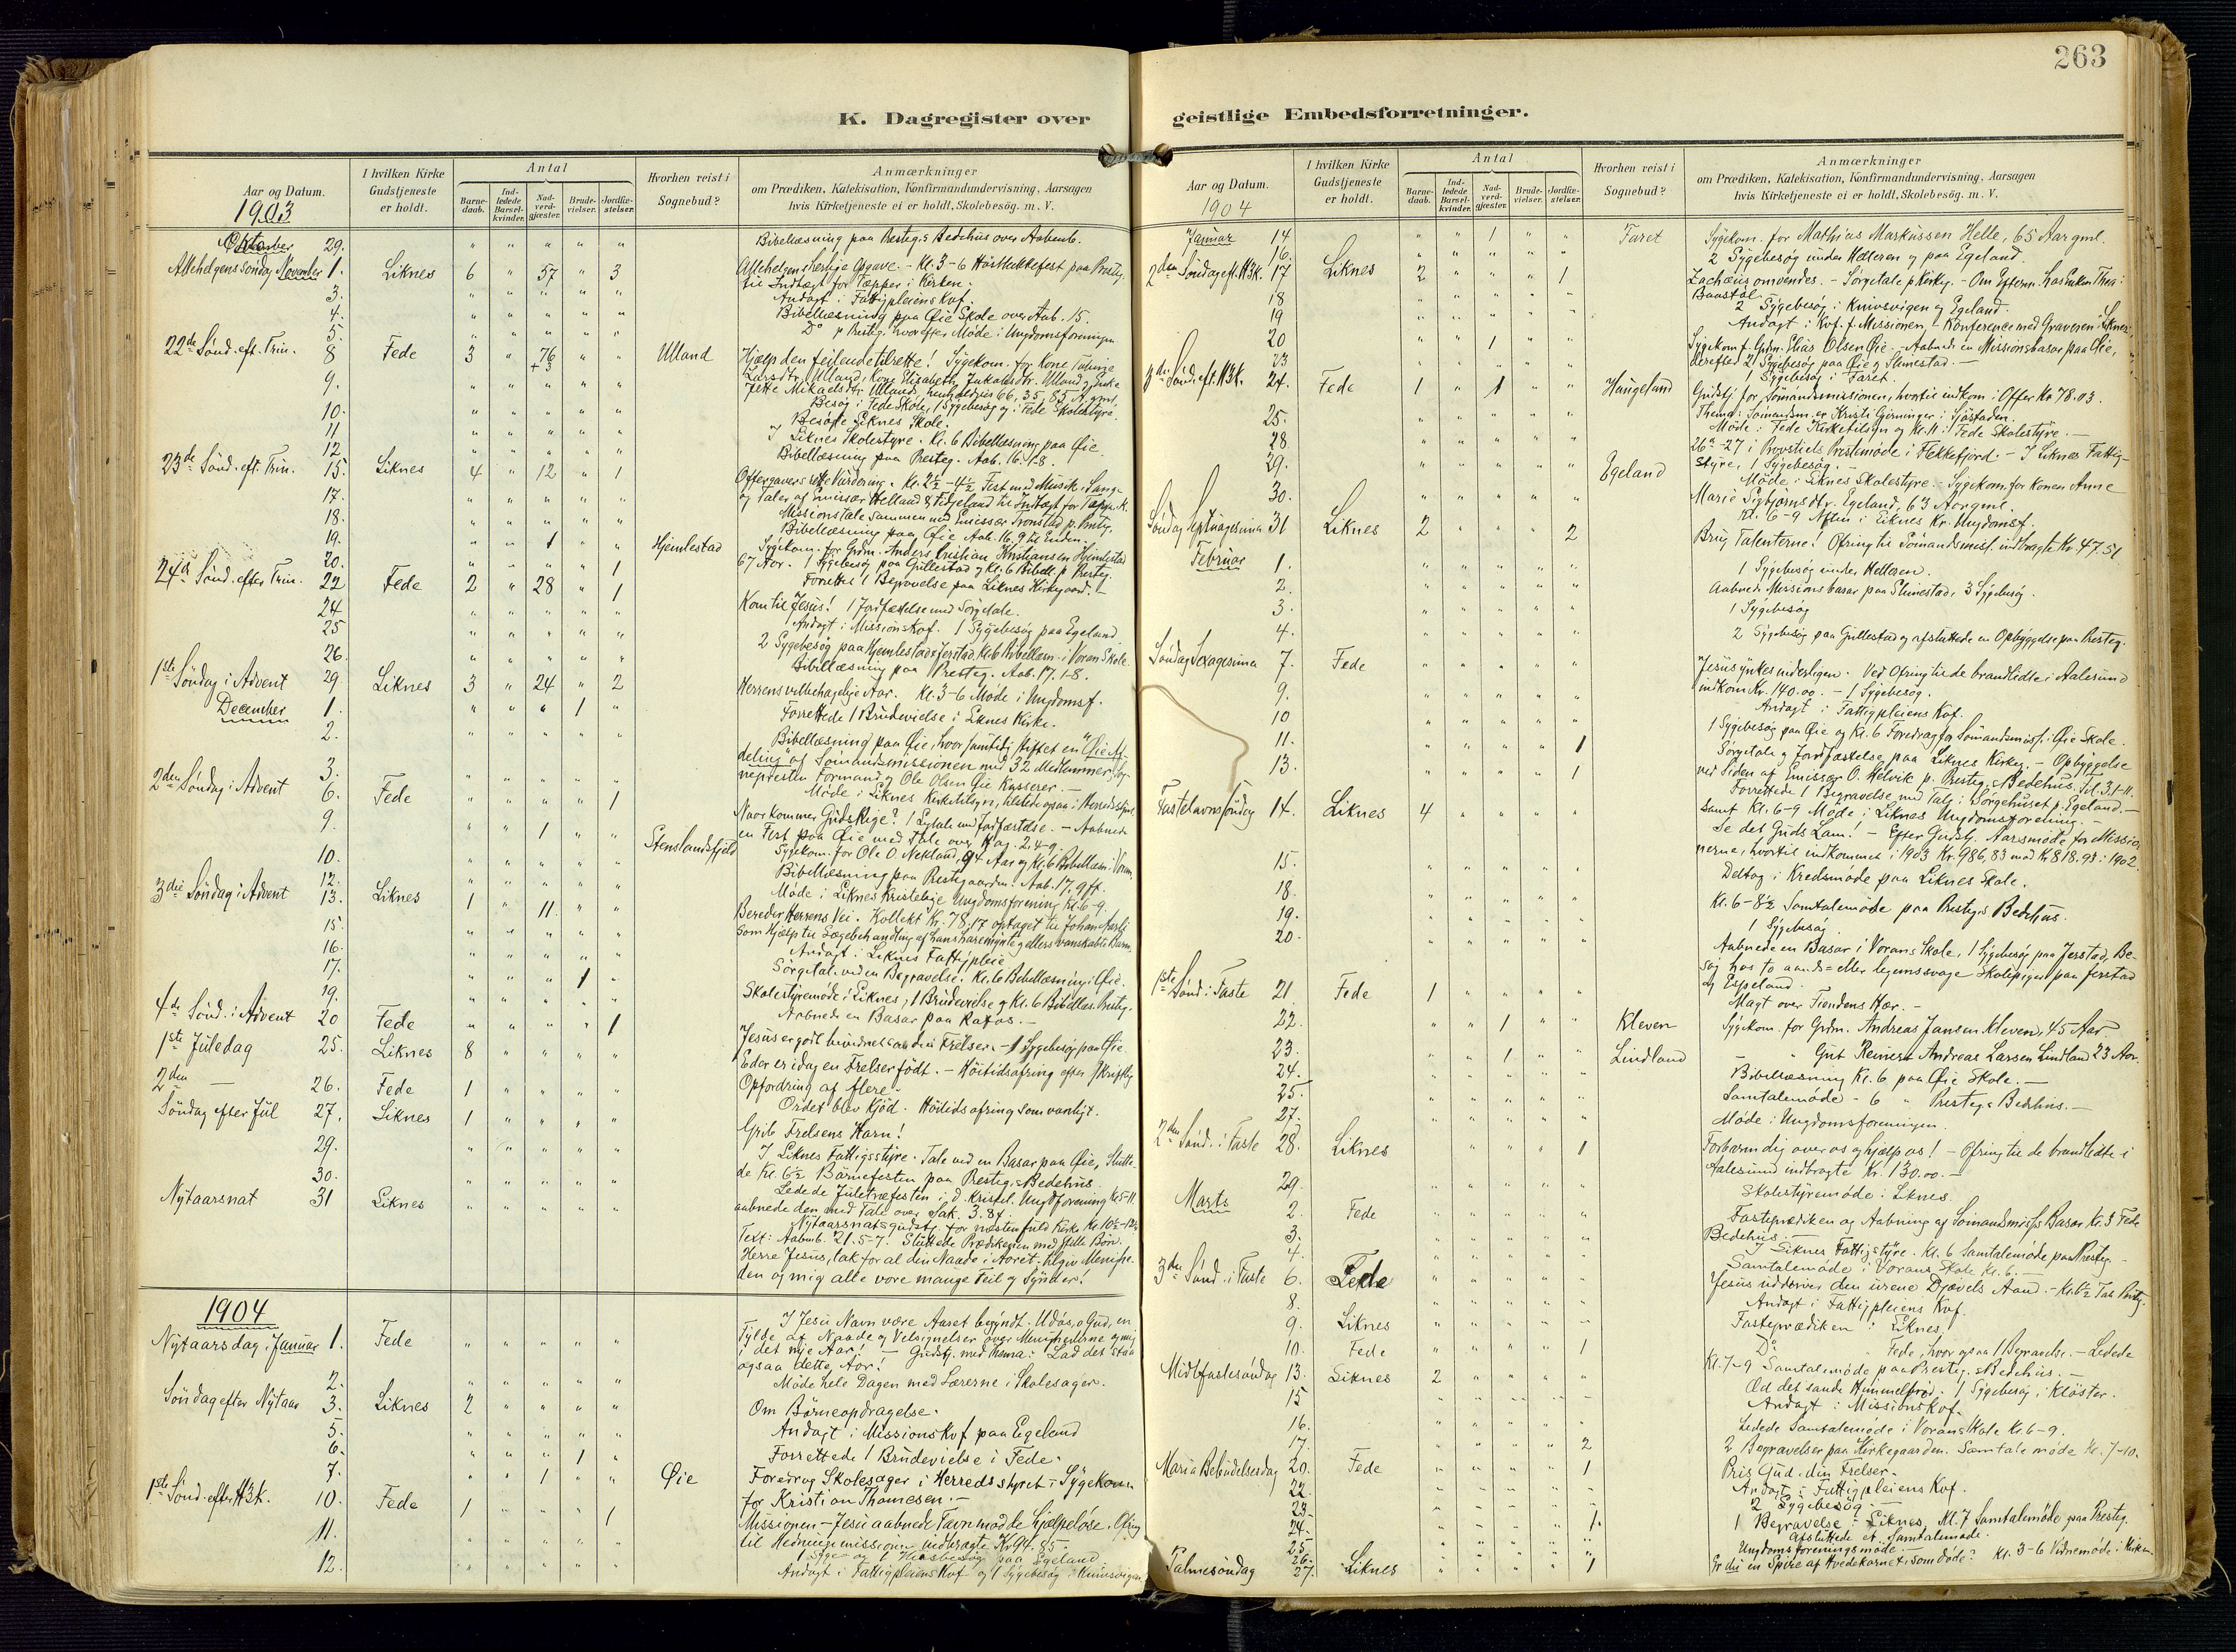 263
K. Dagregister over
Aar og Datum.
I hvilken Kirke Gudstjeneste er holdt.
Antal
Barnedaab.
Indledede Barselkvinder.
Nadverdgjæster.
Brudevielser.
Jordfæstelser.
Hvorhen reist i Sognebud?
Anmærkninger
om Prædiken, Katekisation, Konfirmandundervisning, Aarsagen
hvis Kirketjeneste ei er holdt, Skolebesøg. m. V.
1903
Oktober 29. " " " " " Bibellæsning paa Presteg.s Bedehus over Aabenb.
Allehelgenssøndag November 1. Liknes 6 " 57 " 3 Allehelgens herlige Opgave. - Kl. 3-6 Høsttakkefest paa Presteg.
til Indtægt for Tæpper i Kirken.
3. " " " " " Andagt i Fattigpleiens Kvf.
4. " " " " " Bibellæsning paa Øie Skole over Aab. 15.
5. " " " " " Do p Presteg. hvorefter Møde i Ungdomsforeningen
22de Sønd. eft. Trin. 8 Fede 3 " 76 + 3 " " Ulland Hjælp den feilende tilrette! Sygekom. for Kone
Larsdtr. Ulland, Kone Elisabeth Jakobsdtr. Ulland og Enke
Mikaelsdtr. Ulland, henholdsvis 66, 35, 83 A. gml.
9. " " " " " Besøg i Fede Skole, 1 Sygebesøg og i Fede Skolestyre.
10. " " " " " Besøgte Liknes Skole.
11 " " " " " I Liknes Skolestyre. Kl. 6 Bibellæsning paa Øie.
12 " " " " " Bibellæsning paa Presteg. Aab. 16. 1-8.
23de Sønd. eft. Trin. 15. Liknes 4 " 12 " 1 Offergavers rette Vurdering. Kl. 2½-4½ Fest med Musik, Sang
og Taler af Emissær Helland & Fidjeland til Indtægt for Tæpp. K.
17. " " " " " Missionstale sammen med Emissær Tronstad p. Presteg.
18. " " " " " Bibellæsning paa Øie Aab. 16. 9 til Enden.
19. " " 1 " " Hjemlestad Sygekom. for Grdm. Anders Cristian Kristiansen Hjemlestad
67 Aar. 1 Sygebesøg paa Gullestad og Kl. 6 Bibell. p Presteg.
20. " " " " 1 Forrettet 1 Begravelse paa Liknes Kirkegaard.
24de Sønd. efter Trin. 22 Fede 2 " 28 " 1 Kom til Jesus! 1 Jordfæstelse med Sørgetale.
24 " " " " " Andagt i Missionskvf. 1 Sygebesøg paa Egeland.
25 " " " " " 2 Sygebesøg paa Hjemlestad & Jerstad. Kl. 6 Bibellæsn. i Voran Skole.
26. " " " " " Bibellæsning paa Presteg. Aab. 17. 1-8.
1ste Søndag i Advent 29. Liknes 3 " 24 " 2 Herrens velbehagelige Aar. Kl. 3-6 Møde i Ungdomsf.
December 1. " " " 1 " Forrettede 1 Brudevielse i Liknes Kirke.
2. " " " " " Bibellæsning paa Øie, hvor samtidig stiftet en "Øie Af-
deling" af Sømandsmissionen med 32 Medlemmer, Sog-
nepresten Formand og Ole Olsen Øie Kasserer. -
3. " " " " " Møde i Liknes Kirketilsyn, tilstede ogsaa i Herredsstyret
2den Søndag i Advent 6. Fede " " " " 1 Naar kommer Guds Rige? 1 Ligtale ved Jordfæstelse. - Aabnede
en Fest paa Øie med Tale over Hag. 2. 4-9.
9. " " 1 " " Stenslandsfjeld Sygekom. for Ole O. Nekland, 94 Aar og Kl. 6 Bibellæsn. i Voran.
10. " " " " " Bibellæsning paa Prestegaarden. Aab. 17. 9 ff.
12. " " " " " Møde i Liknes Kristelige Ungdomsforening Kl. 6-9
3die Søndag i Advent 13. Liknes 1 " 11. " " Bereder Herrens Vei. Kollekt Kr. 78,17 optaget til Johan Aasli
som Hjælp til Lægebehandling af hans haremynte og ellers vanskabte Barn.
15. " " " " " Andagt i Liknes Fattigpleie
16. " " " " " Sørgetale ved en Begravelse. Kl. 6 Bibellæsning i Øie.
17. " " " 1 " Skolestyremøde i Liknes, 1 Brudevielse og Kl. 6 Bibellæs. Presteg.
19. " " " " " Aabnede en Basar paa Rafos. -
4de Sønd. i Advent 20 Fede " " " " 1 Jesus er godt hvidnet som din Frelser. - 1 Sygebesøg paa Øie.
1ste Juledag 25. Liknes 8 " " " " Eder er idag en Frelser født. - Høitidsofring efter skriftlig
Opfordring af flere.
2den — 26. Fede 1 " " " " Ordet blev Kjød. Høitidsofring som vanligt.
Søndag efter Jul 27. Liknes 1 " " " " Grib Frelsens Horn!
29. " " " " " I Liknes Fattigstyre. Tale ved en Basar paa Øie, Slutte-
de Kl. 6½ Børnefesten paa Presteg.s Bedehus.
30. " " " " " Ledede Juletræfesten i d. Kristel. Ungdforening Kl. 5-11.
aabnede den med Tale over Sak. 3. 8 f.
Nytaarsnat 31 Liknes " " " " " Nytaarsnatsgudstj. for næsten fuld Kirke Kl. 10½-12¼
Text: Aabenb. 21. 5-7. Sluttede Prædikenen med stille Bøn.
Herre Jesus, tak for al din Naade i Aaret. Tilgiv Menighe-
den og mig alle vore mange Feil og Synder!
1904
Nytaarsdag, Januar 1. Fede " " " " " I Jesu Navn være Aaret begyndt. Udøs, o Gud, en
Fylde af Naade og Velsignelser over Menighederne og mig
i det nye Aar! - Gudstj. med Thema: Lad det staa
ogsaa dette Aar!
2. " " " " " Møde hele Dagen med Lærerne i Skolesager.
Søndag efter Nytaar 3. Liknes 2 " " " " Om Børneopdragelse.
5. " " " " " Andagt i Missionskvf paa Egeland
6. " " " 1 " Forrettede 1 Brudevielse i Fede.
7. " " 1 " " Øie Foredrog Skolesager i Herredsstyret - Sygekom.
for Kristian Thomesen. -
1ste Sønd. efter H3k. 10. Fede 1 " " " 1 Missionen - Jesu aabnede Favn mod de hjælpeløse. Ofring
til Hedningemissionen indbragte Kr. 94.85.
11. " " " " " 1 Syge og 1 Husbesøg paa Egeland
12. " " " " " Andagt i Fattigpleiens Kvf og 1 Sygebesøg i Knivsvigen
geistlige Embedsforretninger.
Aar og Datum.
I hvilken Kirke Gudstjeneste er holdt.
Antal
Barnedaab.
Indledede Barselkvinder.
Nadverdgjæster.
Brudevielser.
Jordfæstelser.
Hvorhen reist i Sognebud?
Anmærkninger
om Prædiken, Katekisation, Konfirmandundervisning, Aarsagen
hvis Kirketjeneste ei er holdt, Skolebesøg. m. V.
1904
Januar 14 " " 1 " " Faret Sygekom. for Mathias Markussen Helle, 65 Aar gml.
16. " " " " " 2 Sygebesøg under Helleren og paa Egeland.
2den Søndag eft. H3k. 17 Liknes 2 " " " 1 Zachæus omvendes. - Sørgetale p Kirkeg. - Om Efterm. hos Enken Thea
Baastøl
18 " " " " " 2 Sygebesøg i Knivsvigen og Egeland.
19 " " " " " Andagt i Kvf. f. Missionen, - Konference med Graveren i Liknes.
20 " " 1 " " Sygekom f. Grdm. Elias Olsen Øie. - Aabnede en Missionsbasar paa Øie,
derefter 2 Sygebesøg paa Øie og Slimestad. -
23 " " " " " Sygebesøg i Faret.
3die Sønd. eft. H3k. 24. Fede 1 " 1 " " Haugeland Gudstj. for Sømandsmissionen, hvortil indkom i Offer Kr. 78.03.
Thema: Sømandsm. er Kristi Gjerninger i Sjøstaden.
25. " " " " " Møde i Fede Kirketilsyn og Kl. 11 i Fede Skolestyre. -
28. " " " " " 26de-27 i Provstiets Prestemøde i Flekkefjord. - I Liknes Fattig-
styre, 1 Sygebesøg. -
29. " " " " " Egeland Møde i Liknes Skolestyre. - Sygekom. for Konen Anne
Marie Sigbjørnsdtr. Egeland, 63 Aar gml.
30. " " " " " Kl. 6-9 Aften i Liknes Kr. Ungdomsf.
Søndag Septuagesima 31 Liknes 2 " " " 2 Brug Talenterne! Ofring til Sømandsmiss. indbragte Kr. 47.51
Februar 1. " " " " " 1 Sygebesøg under Helleren.
2. " " " " " Aabnede Missionsbasar paa Slimestad, 3 Sygebesøg.
3. " " " " " 1 Sygebesøg
4. " " " " " 2 Sygebesøg paa Gullestad og afsluttede en Opbyggelse paa Presteg.
Søndag Sexagesima 7. Fede " " " " " Jesus ynkes inderligen. Ved Ofring til de brandlidte i Aalesund
indkom Kr. 140.00. - 1 Sygebesøg.
9. " " " " " Andagt i Fattigpleiens Kvf.
10 " " " " " 1 Sygebesøg paa Øie og Kl. 6 Foredrag for Sømandsmiss. i Øie Skole.
11. " " " " 1 Sørgetale og Jordfæstelse paa Liknes Kirkeg. - Opbyggelse
ved Siden af Emissær O. Helvik p. Presteg.s Bedehus. Fil. 3. 1-11.
13. " " " " 1 Forrettede 1 Begravelse med Tale i Sørgehuset p. Egeland. -
samt Kl. 6-9 Møde i Liknes Ungdomsforening. -
Fastelavnssøndag 14. Liknes 4 " " " " Se det Guds Lam! - Efter Gudstj. Aarsmøde for Missio-
nerne, hvortil indkommet i 1903 Kr. 986,83 mod Kr. 818.93 i 1902
15. " " " " " Deltog i Kredsmøde paa Liknes Skole.
18. " " " " " Kl. 6-8½ Samtalemøde paa Presteg.s Bedehus.
19. " " " " " 1 Sygebesøg
20. " " " " " Aabnede en Basar i Vorans Skole, 1 Sygebesøg paa Jerstad, Be-
søg hos to aands- eller legemssvage Skolepiger paa Jerstad
og Espeland.
1ste Sønd. i Faste 21 Fede 1 " " " " Magt over Fiendens Hær. -
22. " " 1 " " Kleven Sygekom. for Grdm. Andreas Jansen Kleven, 45 Aar
23. " " 1 " " Lindland — " Gut Reinert Andreas Larsen Lindland 23 Aar.
24. " " " " " Bibellæsning Kl. 6 paa Øie Skole. -
25. " " " " " Samtalemøde - 6 " Presteg.s Bedehus. -
27. " " " " " Møde i Ungdomsforeningen.
2den Sønd. i Faste 28. Liknes " " " " 1 Forbarm dig over os og hjælp os! - Ofring til de brandlidte i
Aalesund indbragte Kr. 130.00. -
29. " " " " " Skolestyremøde i Liknes.
Marts 2. Fede " " " " " Fasteprædiken og Aabning af Sømandsmiss.s Basar Kl. 3 Fede
Bedehus. -
3. " " " " " I Liknes Fattigstyre. Kl. 6 Samtalemøde paa Presteg.
4. " " " " " Samtalemøde i Vorans Skole Kl. 6. -
3die Sønd. i Faste 6. Fede " " " " " Jesus uddriver den urene Djævels Aand. - Kl. 6½ Tale Presteg.
8. " " " " " Andagt i Fattigpleiens Kvf.
9. Liknes " " " " " Fasteprædiken i Liknes.
10. Fede " " " " 1 Do Fede, hvor ogsaa 1 Begravelse. - Ledede
Kl. 7-9 Samtalemøde paa Presteg.s Bedehus. -
Midtfastesøndag 13. Liknes 2 " " " " Æd det sande Himmelbrød. 1 Sygebesøg i Kløster.
15 " " " " " Andagt i Missionskvf.
16. " " " " " Ledede Samtalemøde i Vorans Skole Kl. 6-9.
17. " " " " 2 2 Begravelser paa Kirkegaarden. Samtalemøde Kl. 7-10.
Maria Bebudelsesdag 20. Fede " " " " 1 Pris Gud, din Frelser.
22. " " " " " Andagt i Fattigpleiens Kvf.
23. " " " " " 2 Sygebesøg. -
24. " " " " 1. 1 Begravelse i Liknes, Kl. 7 Samtalemøde paa Presteg.
25. " " " " " afsluttede et Samtalemøde.
26. " " " " " Ungdomsforeningsmøde.
Palmesøndag 27. Liknes " " " " 1 Er du en Spire af Hvedekornet, som døde? Kl. 3-6 Vidnemøde i Kirken.